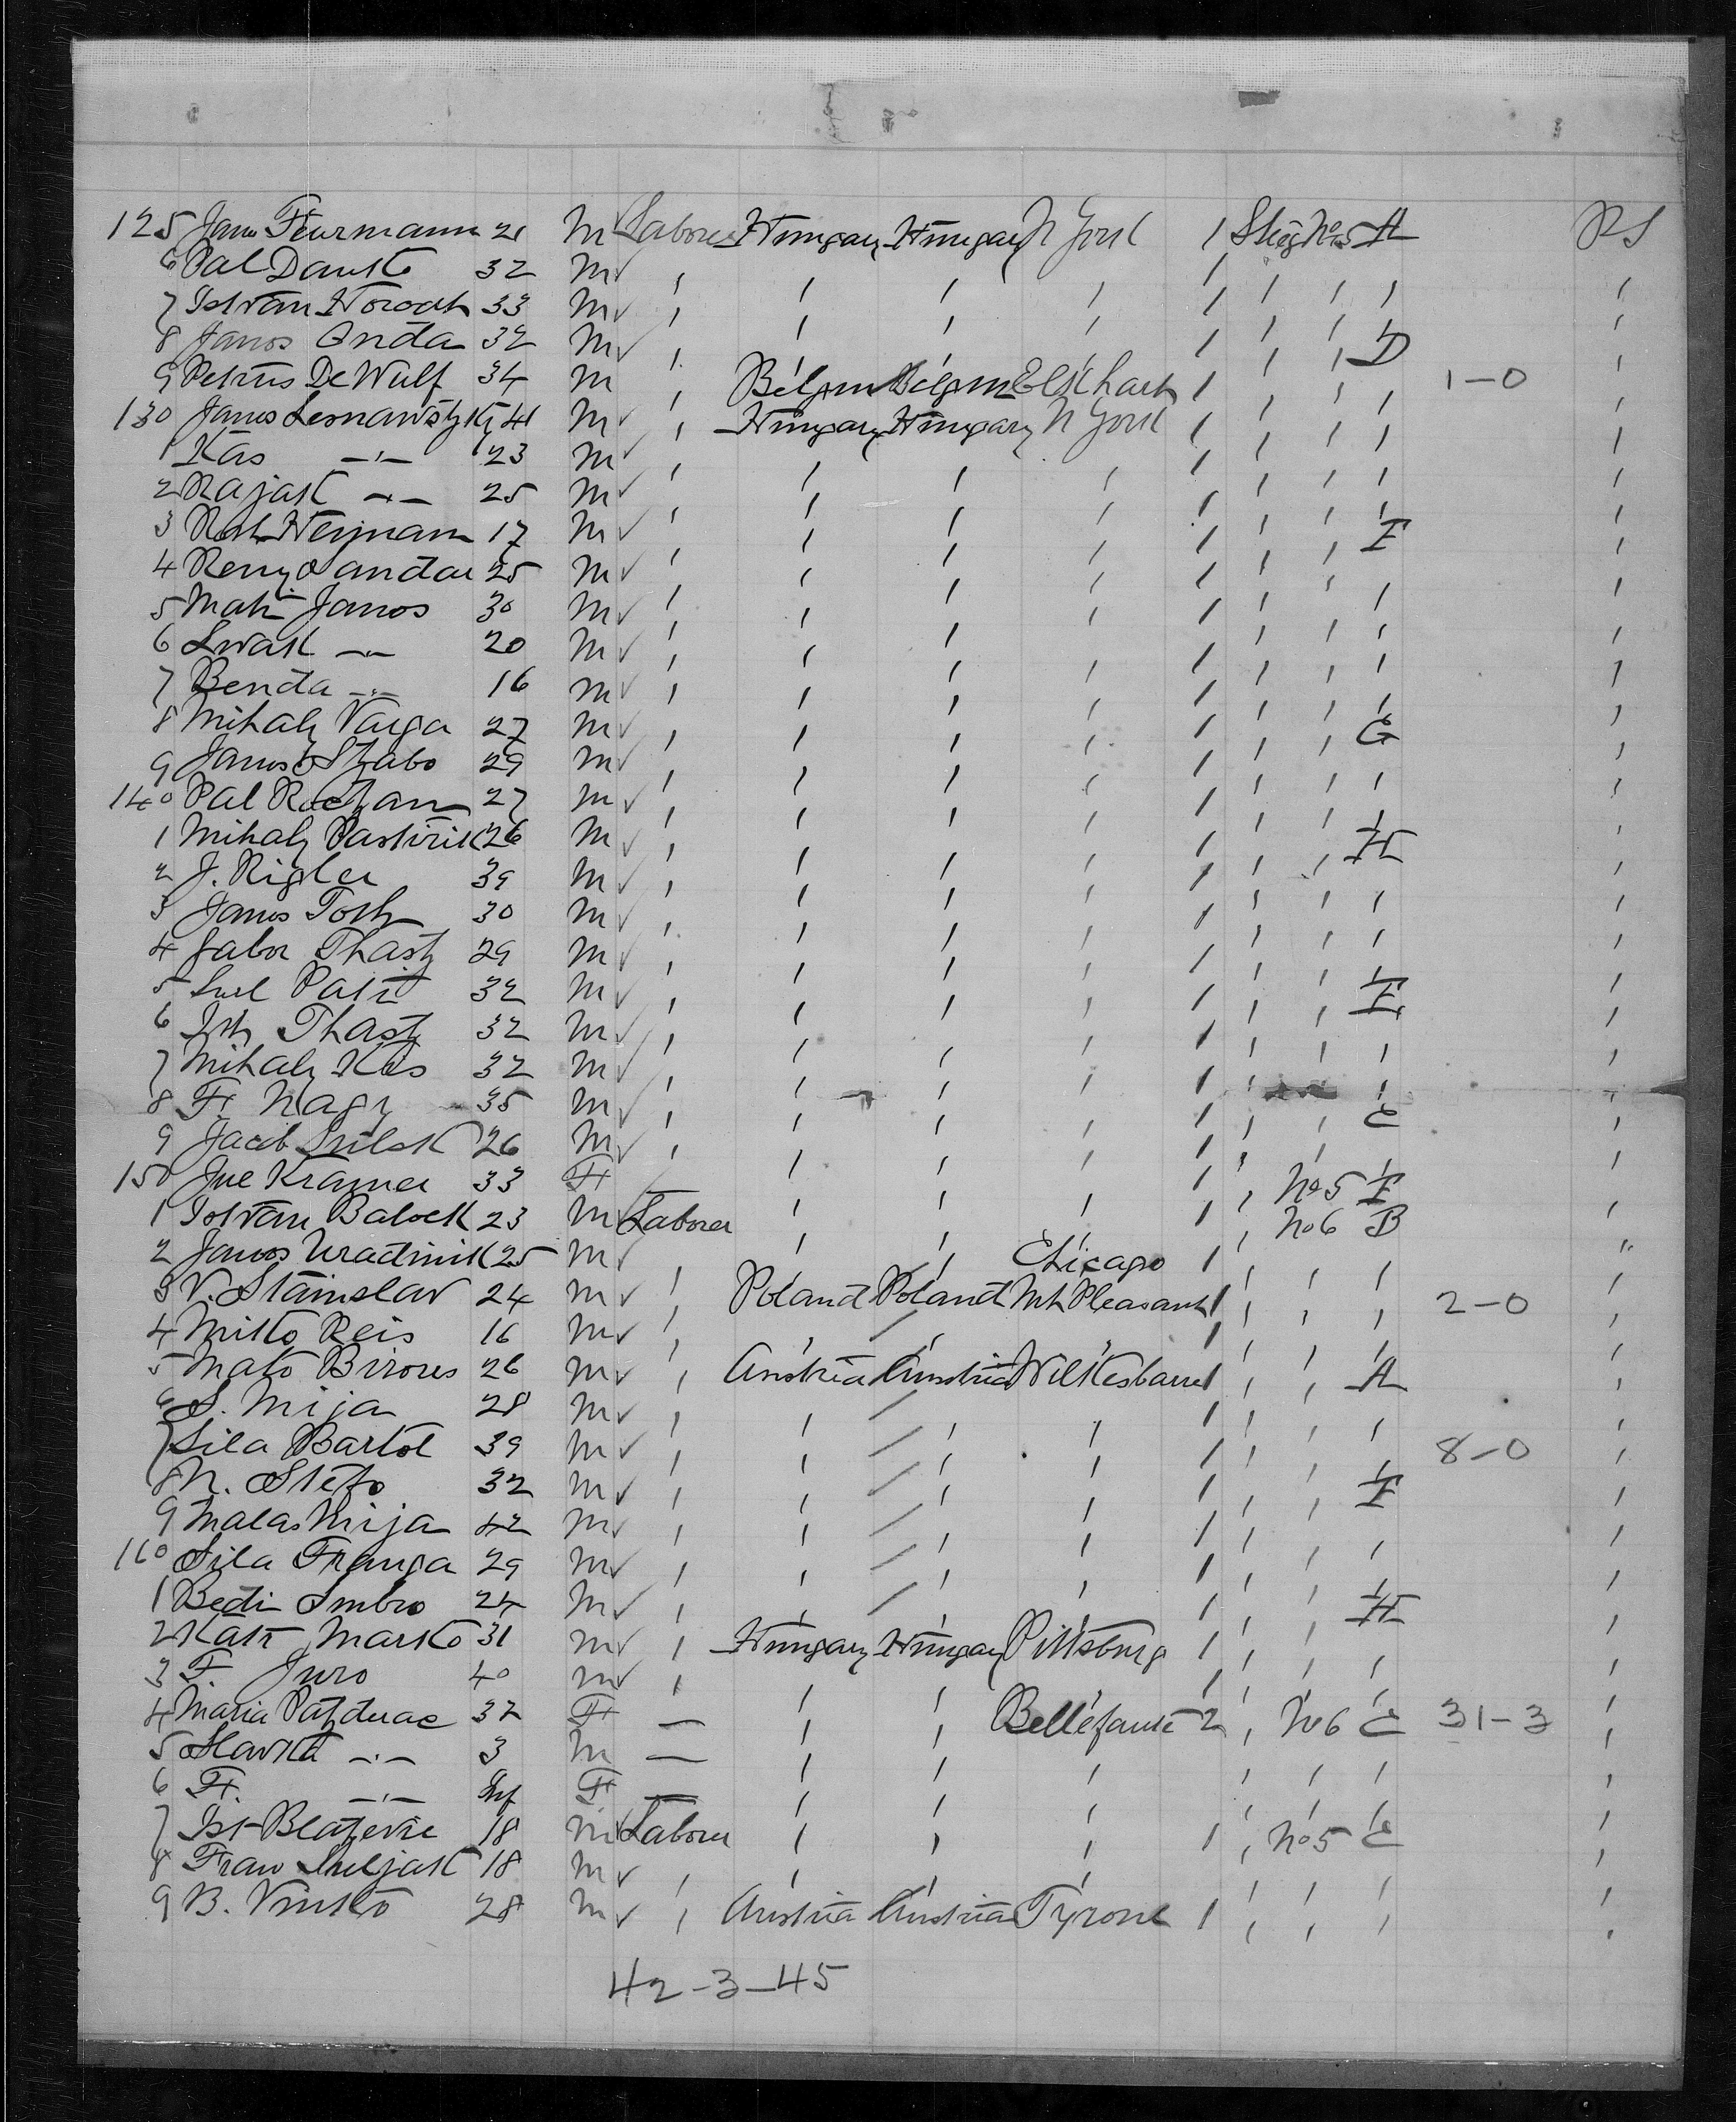 125 Janos Feurmann 21 M Laborer Hungary Hungary N York 1 Steg No 5 A PS
6 Pal Danko 32 M ✓ " " " " 1 " " " "
7 Istvan Horvath 33 M ✓ " " " " 1 " " " "
8 Janos Onda 32 M ✓ " " " " 1 " " D "
9 Petrus De Wulf 34 M " Belgium Belgium Elkhart 1 " " " 1-0 "
130 Janos 41 M ✓ " Hungary Hungary N York 1 " " " "
1 Kas -"- 23 M ✓ " " " " 1 " " " "
2 Rajak -"- 25 M ✓ " " " " 1 " " " "
3 Herman 17 M ✓ " " " " 1 " " F "
4 25 M ✓ " " " " 1 " " " "
5 Mate Janos 30 M ✓ " " " " 1 " " " "
6 -"- 20 M ✓ " " " " 1 " " " "
7 Benda -"- 16 M ✓ " " " " 1 " " " "
8 Mihaly Varga 27 M ✓ " " " " 1 " " G "
9 Janos Szabo 29 M ✓ " " " " 1 " " " "
140 Pal 27 M ✓ " " " " 1 " " " "
1 Mihaly Pastirik 26 M ✓ " " " " 1 " " H "
2 J. Rigler 39 M ✓ " " " " 1 " " " "
3 Janos Toth 30 M ✓ " " " " 1 " " " "
4 Gabor Thasz 29 M ✓ " " " " 1 " " " "
5 32 M ✓ " " " " 1 " " "
6 Thasz 32 M ✓ " " " " 1 " " " "
7 Mihaly Kis 32 M ✓ " " " " 1 " " " "
8 F. Nagy 35 M ✓ " " " " 1 " " E "
9 Jacob 26 M ✓ " " " " 1 " " " "
150 Kramer 33 F — " " " 1 " No 5 F
1 Istvan Balock 23 M Laborer " " " 1 " No 6 B "
2 Janos Uradinik 25 M ✓ " " " Chicago 1 " " " "
3 V. Stanislav 24 M ✓ " Poland Poland Mt Pleasant 1 " " " 2-0 "
4 Misko Reis 16 M ✓ " " " " 1 " " " "
5 Mato 26 M ✓ " Austria Austria Wilkesbarre 1 " " A "
6 S. Mija 28 M ✓ " " " " 1 " " " "
7 Sila Bartol 39 M ✓ " " " " 1 " " " 8-0 "
8 N. Stefo 32 M ✓ " " " " 1 " " F "
9 Malas Mija 42 M ✓ " " " " 1 " " " "
160 Sila Franja 29 M ✓ " " " " 1 " " " "
1 Bedi Imbro 24 M ✓ " " " " 1 " " H "
2 Marko 31 M ✓ " Hungary Hungary Pittsburg 1 " " " "
3 F. Juro 40 M ✓ " " " " 1 " " " "
4 Maria 32 F — " " Bellefante 2 " No 6 E 31-3 "
5 Slavka -"- 3 M — " " " " " " "
6 F. -"- Inf F — " " " " " " "
7 Ist 18 M Laborer " " " 1 " No 5 E "
8 Suljak 18 M ✓ " " " " " " " "
9 B. Vinko 28 M ✓ " Austria Austria Tyrone 1 " " " "
42-3-45